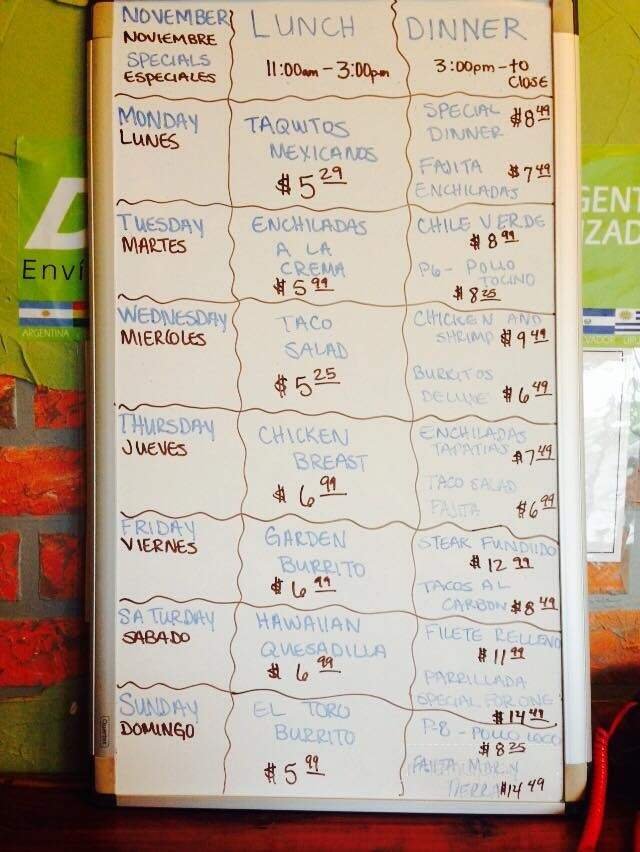 NOVEMBER LUNCH DINNER
NOVIEMBRE
SPECIALS 11:00am - 3:00pm 3:00pm - to
ESPECIALES CLOSE
MONDAY
LUNES
TAQUITOS
MEXICANOS
$5 29
SPECIAL $8 49
DINNER
FAJITA $7 49
ENCHILADAS
TUESDAY
MARTES
ENCHILADAS
A LA
CREMA
$5 99
CHILE VERDE
$8 99
P6 - POLLO
TOCINO
$8 25
WEDNESDAY
MIERCOLES
TACO
SALAD
$5 25
CHICKEN AND
SHRIMP $9 49
BURRITOS
DELUXE $6 49
THURSDAY
JUEVES
CHICKEN
BREAST
$6 99
ENCHILADAS
TAPATIAS $7 49
TACO SALAD
FAJITA $6 99
FRIDAY
VIERNES
GARDEN
BURRITO
$6 99
STEAK FUNDIIDO
$12 99
TACOS AL
CARBON $8 49
SATURDAY
SABADO
HAWAIIAN
QUESADILLA
$6 99
FILETE RELLENO
$11 99
PARRILLADA
SPECIAL FOR ONE
$14 49
SUNDAY
DOMINGO
EL TORO
BURRITO
$5 99
P-8 - POLLO LOCO
$8 25
FAJITA MAR Y
TIERRA $14 49
Quartet
D
Enví
ARGENTINA
GENT
ZAD
VADOR